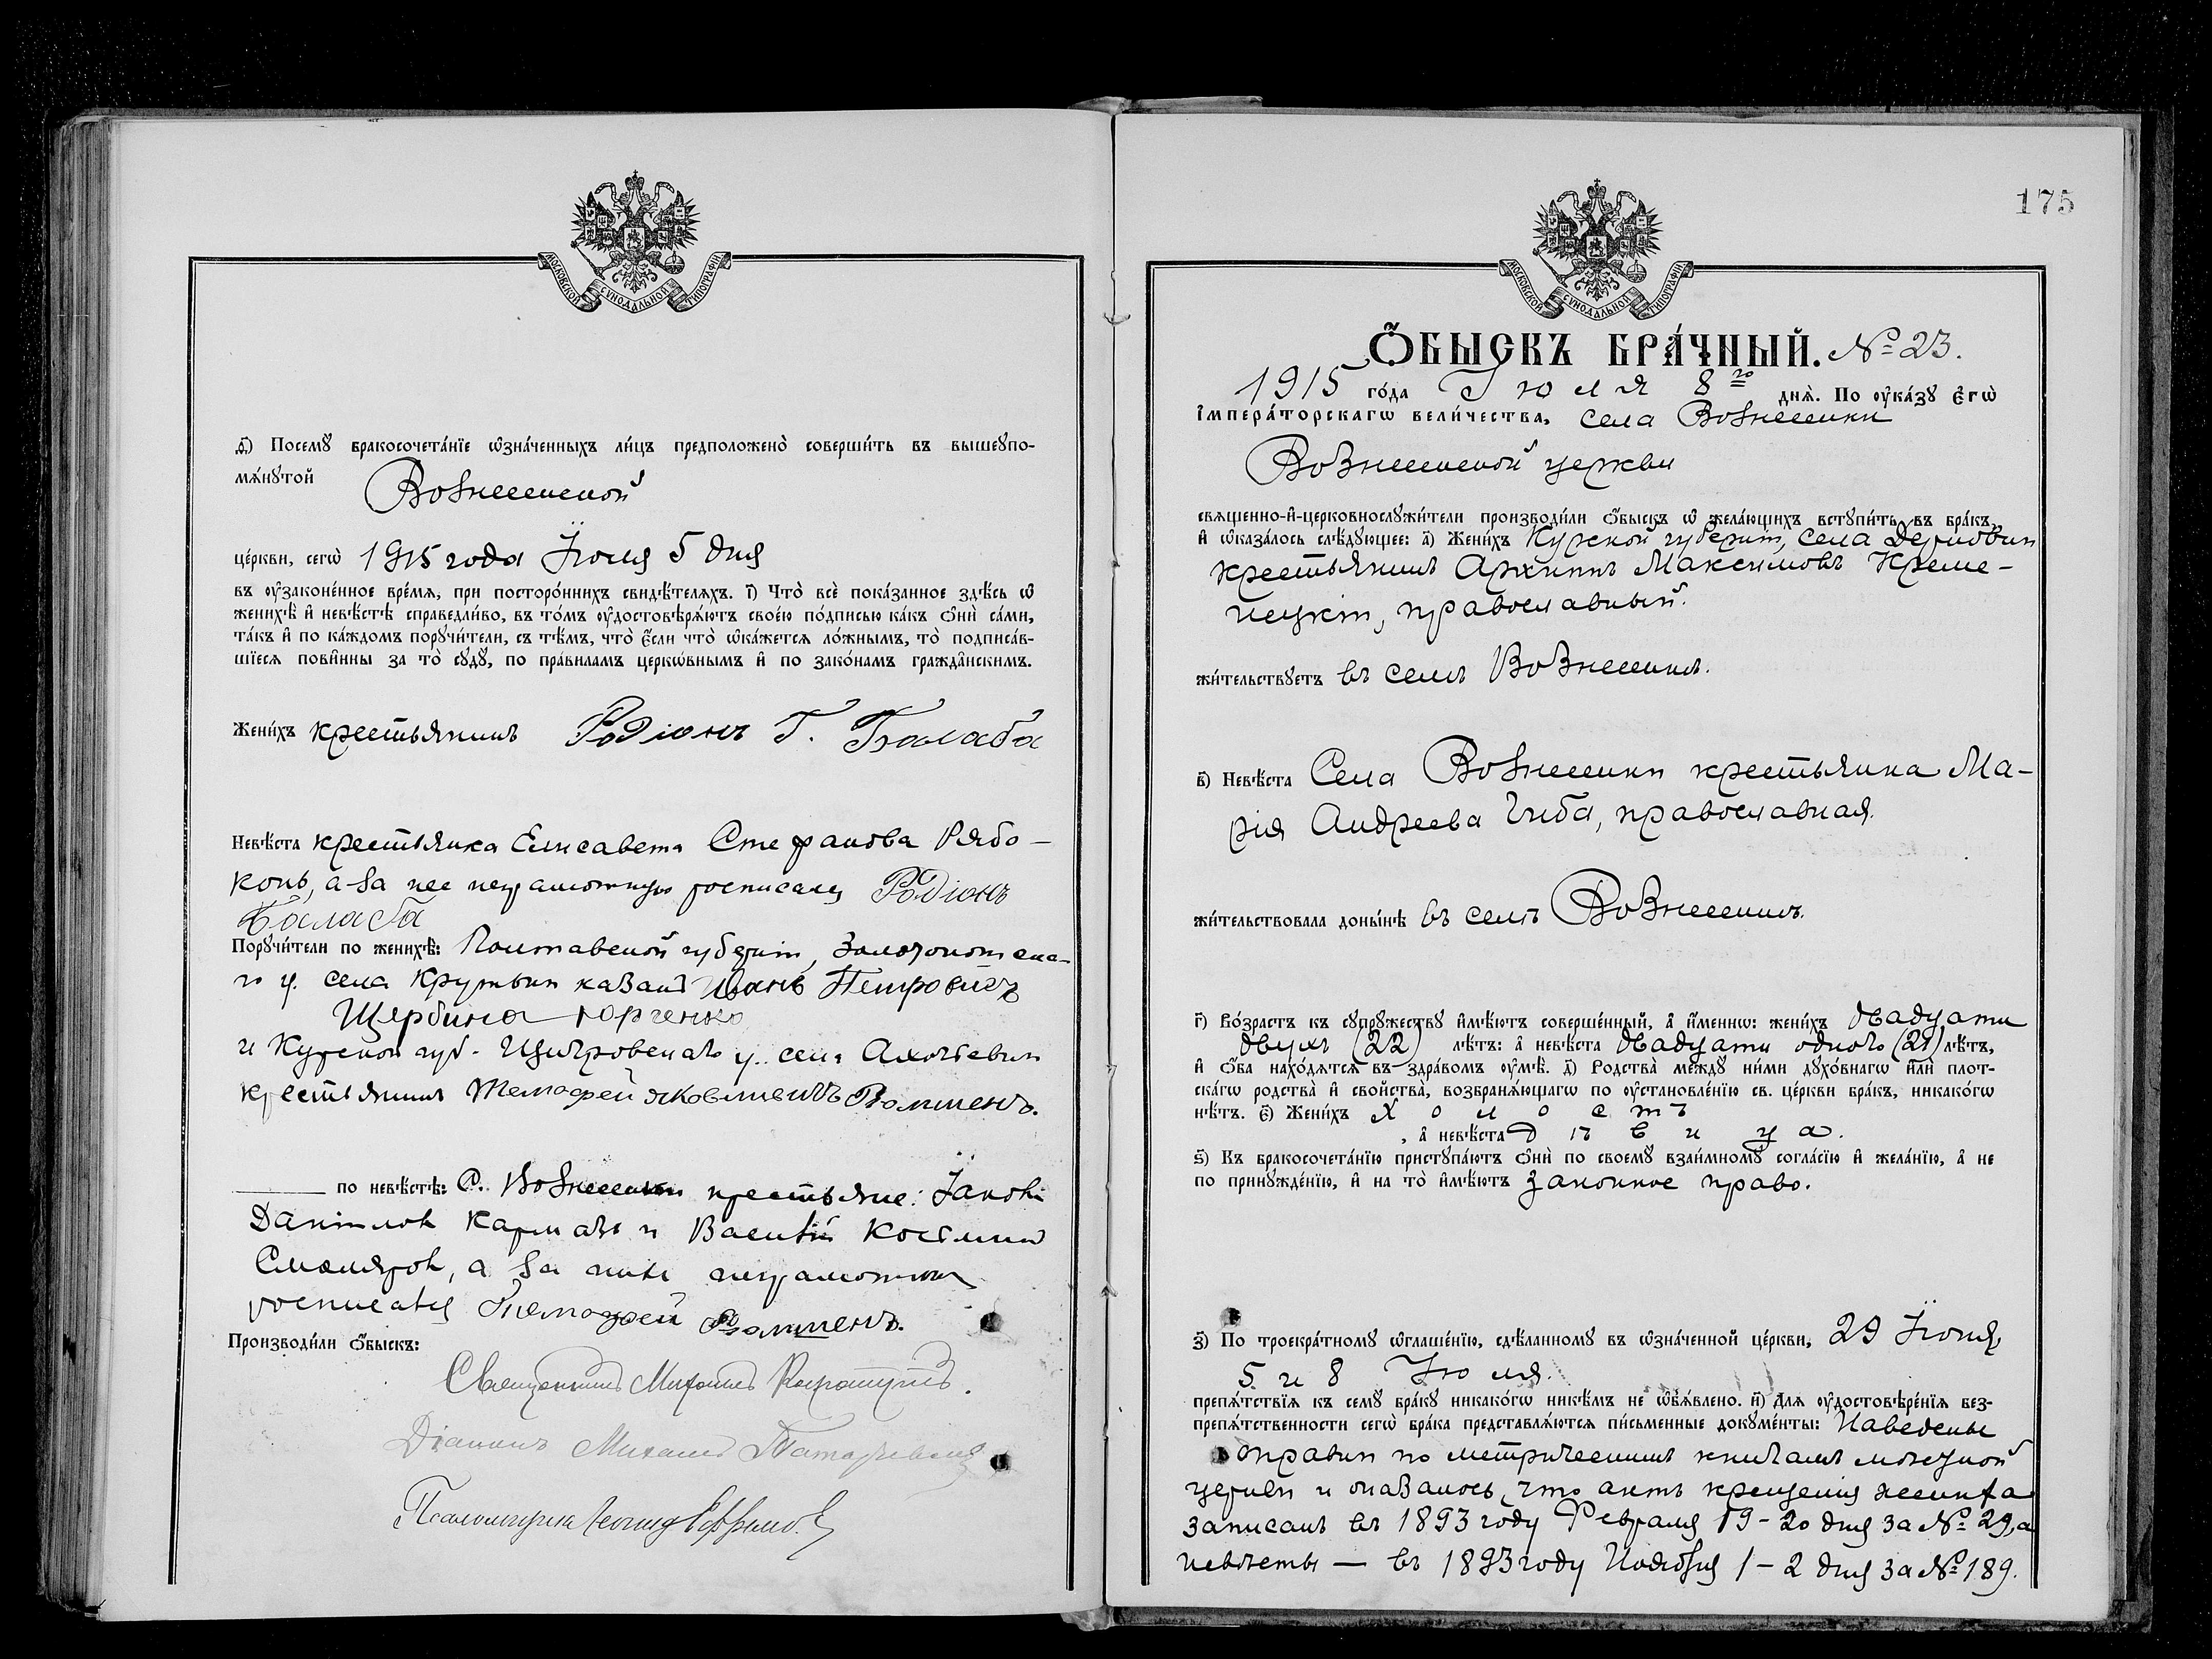 МОСКОВСКОЙ СѴНОДАЛЬНОЙ ТИПОГРАФІИ
ѳ҃) Посемꙋ̀ бракосочета́нїе ѡ҆зна́ченныхъ ли́цъ предположено̀ соверши́ть въ вышеꙋпо-
мѧ́нꙋтой Вознесенской
це́ркви, сегѡ̀ 1915 года Іюля 5 дня
въ ᲂу҆законе́нное вре́мѧ, при посторо́ннихъ свидѣ́телѧхъ. і҃) Что̀ всѐ пока́занное здѣ́сь ѡ҆
женихѣ̀ и҆ невѣ́стѣ справедли́во, въ то́мъ ᲂу҆достовѣрѧ́ютъ свое́ю по́дписью ка́къ ѻ҆нѝ са́ми,
та́къ и҆ по ка́ждомъ порꙋчи́тели, съ тѣ́мъ, что̀ є҆́сли что̀ ѡ҆ка́жетсѧ ло́жнымъ, то̀ подписа́в-
шїесѧ пови́нны за то̀ сꙋдꙋ̀, по пра́виламъ церко́внымъ и҆ по зако́намъ гражда́нскимъ.
Жени́хъ крестьянинъ Родіонъ Г. Балаба
Невѣ́ста крестьянка Елисавета Стефанова Рябо-
конь, а за нее неграмотную росписался Родіонъ
Балаба
Порꙋчи́тели по женихѣ̀: Полтавской губерніи, Золотоношска-
го у. села Крутьки казакъ Иванъ Петровичъ
Щербина Юрченко
и Курской губ. Щигровскаго у. села
крестьянинъ Темофей Яковлевичъ
по невѣ́стѣ: С. Вознесенки крестьяне: Іаковъ
Даніиловъ Кармазь и Василій Косьминъ
Смоляровъ, а за нихъ неграмотныхъ
росписался Темофей
Производи́ли ѻ҆́быскъ:
Священникъ Михаилъ
Діаконъ Михаилъ
Псаломщикъ Леонидъ Ефремовъ
175
МОСКОВСКОЙ СѴНОДАЛЬНОЙ ТИПОГРАФІИ
Ѻ҆́БЫСКЪ БРА́ЧНЫЙ. № 23.
1915 го́да Іюля 8го днѧ̀. По ᲂу҆ка́зꙋ є҆гѡ̀
і҆мпера́торскагѡ вели́чества, села Вознесенки
Вознесенской церкви
свѧще́нно-и҆-церковнослꙋжи́тели производи́ли ѻ҆́быскъ ѡ҆ жела́ющихъ встꙋпи́ть въ бра́къ,
и҆ ѡ҆каза́лось слѣ́дꙋющее: а҃) Жени́хъ Курской губерніи, села
крестьянинъ Архипъ Максимовъ Креме-
нецкій, православный.
жи́тельствꙋетъ въ селѣ Вознесенкѣ.
в҃) Невѣ́ста Села Вознесенки крестьянка Ма-
рія Андреева Гиба, православная.
жи́тельствовала доны́нѣ въ селѣ Вознесенкѣ.
г҃) Во́зрастъ къ сꙋпрꙋ́жествꙋ и҆мѣ́ютъ соверше́нный, а҆ и҆́меннѡ: жени́хъ двадцати
двухъ (22) лѣ́тъ: а҆ невѣ́ста двадцати одного (21) лѣ́тъ,
и҆ ѻ҆́ба нахо́дѧтсѧ въ здра́вомъ ᲂу҆мѣ̀. д҃) Родства̀ ме́ждꙋ ни́ми дꙋхо́внагѡ и҆лѝ плот-
ска́гѡ родства̀ и҆ сво́йства̀, возбранѧ́ющагѡ по ᲂу҆становле́нїю св. це́ркви бра́къ, никако́гѡ
нѣ́тъ. є҃) Жени́хъ Холостъ
, а҆ невѣ́ста Дѣвица.
ѕ҃) Къ бракосочета́нїю пристꙋпа́ютъ ѻ҆нѝ по своемꙋ̀ взаи́мномꙋ согла́сїю и҆ жела́нїю, а҆ не
по принꙋжде́нїю, и҆ на то̀ и҆мѣ́ютъ законное право.
з҃) По троекра́тномꙋ ѡ҆глаше́нїю, сдѣ́ланномꙋ въ ѡ҆зна́ченной це́ркви, 29 Іюня,
5 и 8 Іюля.
препѧ́тствїѧ къ семꙋ̀ бра́кꙋ никако́гѡ никѣ́мъ не ѡ҆б̾ѧ́влено. и҃) Длѧ ᲂу҆достовѣре́нїѧ без-
препѧ́тственности сегѡ̀ бра́ка представлѧ́ютсѧ пи́сьменные докꙋме́нты: Наведены
справки по метрическимъ книгамъ мѣстной
церкви и оказалось, что актъ крещенія жениха
записанъ въ 1893 году Февраля 19-20 дня за № 29, а
невѣсты — въ 1893 году Ноября 1-2 дня за № 189.